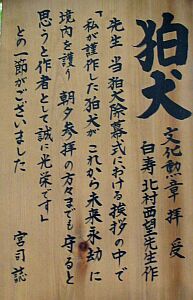 狛犬
文化勲章拝受
白寿北村西望先生作
先生当狛犬除幕式における挨拶の中で
「私が謹作した狛犬がこれから未来永劫に
境内を護り朝夕参拝の方々までも守ると
思うと作者として誠に光栄です」
との一節がございました
宮司誌